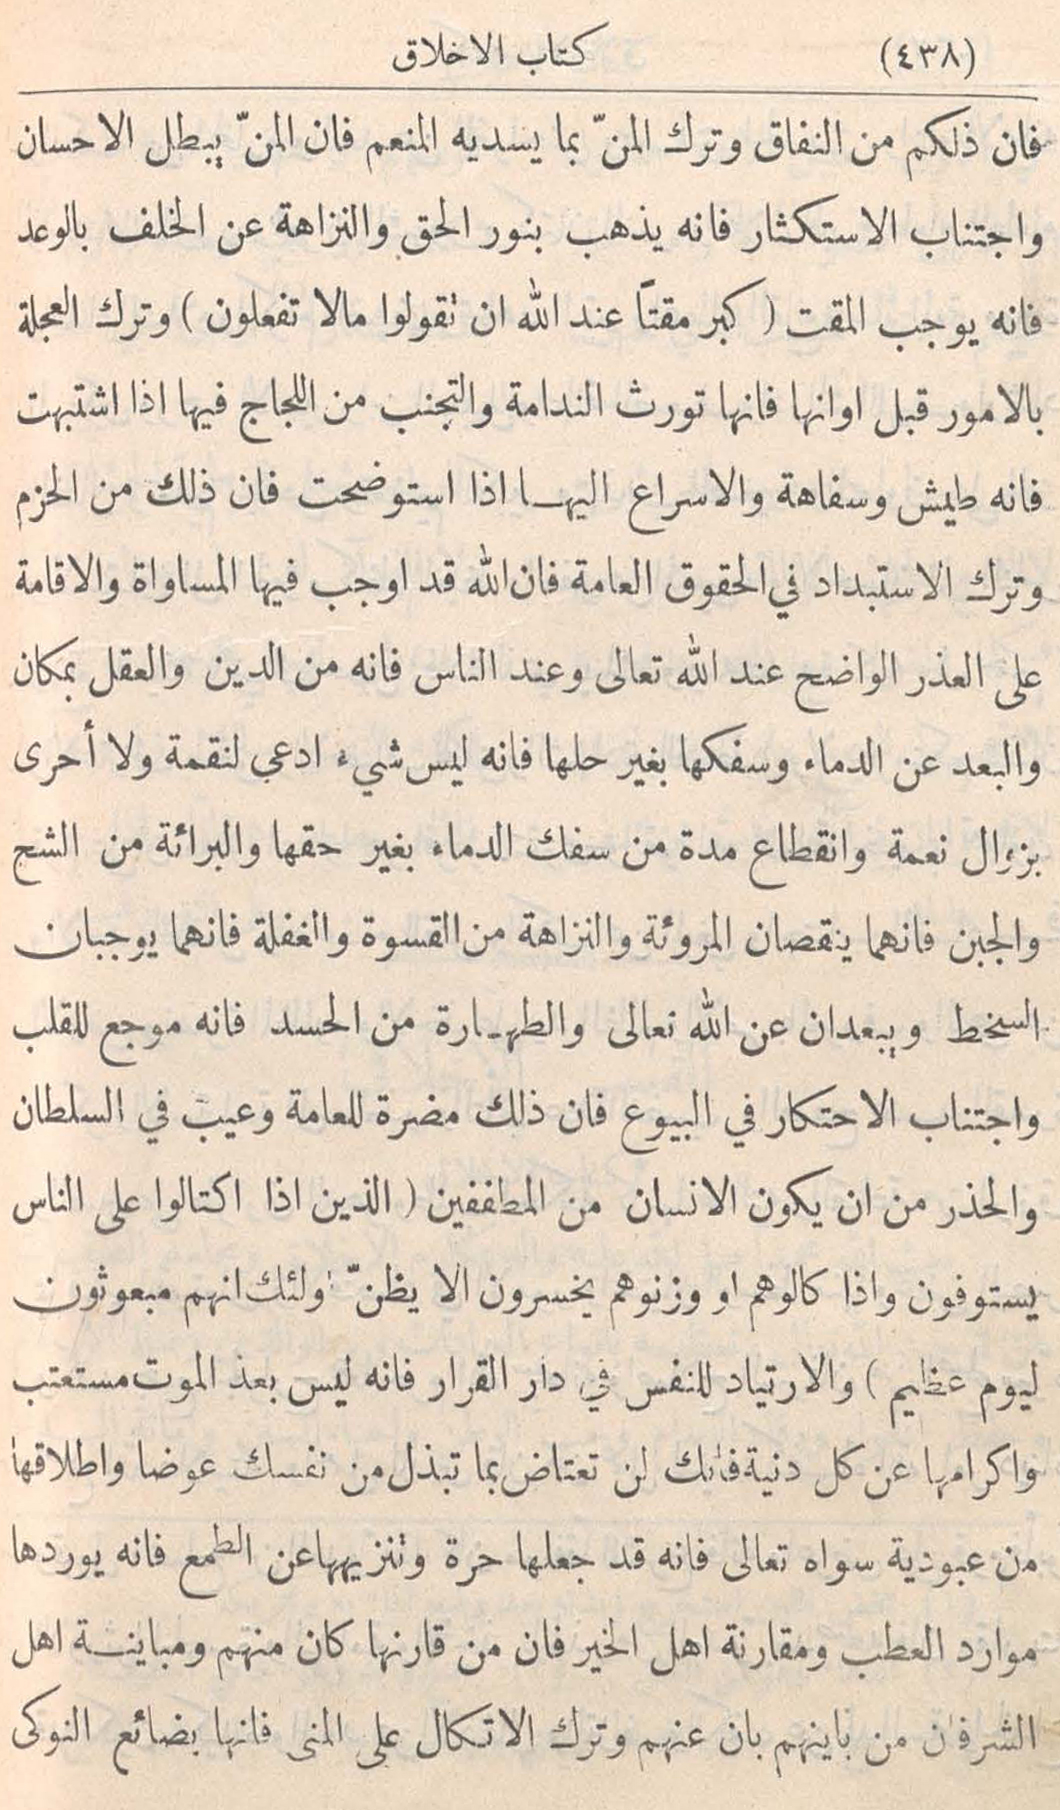 (٤٣٨) كتاب الاخلاق
فان ذلكم من النفاق وترك المنّ بما يسديه المنعم فان المنّ يبطل الاحسان
واجتناب الاستكثار فانه يذهب بنور الحق والنزاهة عن الخلف بالوعد
فانه يوجب المقت ( كبر مقتاً عند الله ان تقولوا مالا تفعلون ) وترك العجلة
بالامور قبل اوانها فانها تورث الندامة والتجنب من اللجاج فيها اذا اشتبهت
فانه طيش وسفاهة والاسراع اليها اذا استوضحت فان ذلك من الحزم
وترك الاستبداد في الحقوق العامة فان الله قد اوجب فيها المساواة والاقامة
على العذر الواضح عند الله تعالى وعند الناس فانه من الدين والعقل بمكان
والبعد عن الدماء وسفكها بغير حلها فانه ليس شيء ادعي لنقمة ولا أحرى
بزوال نعمة وانقطاع مدة من سفك الدماء بغير حقها والبرائة من الشح
والجبن فانهما ينقصان المروئة والنزاهة من القسوة والغفلة فانهما يوجبان
السخط ويبعدان عن الله تعالى والطهـارة من الحسد فانه موجع للقلب
واجتناب الاحتكار في البيوع فان ذلك مضرة للعامة وعيب في السلطان
والحذر من ان يكون الانسان من المطففين ( الذين اذا اكتالوا على الناس
يستوفون واذا كالوهم او وزنوهم يخسرون الا يظنّ اولئك انهم مبعوثون
ليوم عظيم ) والارتياد للنفس في دار القرار فانه ليس بعد الموت مستعتب
واكرامها عن كل دنية فانك لن تعتاض بما تبذل من نفسك عوضا واطلاقها
من عبودية سواه تعالى فانه قد جعلها حرة وتنزيهها عن الطمع فانه يوردها
موارد العطب ومقارنة اهل الخير فان من قارنها كان منهم ومباينة اهل
الشر فان من باينهم بان عنهم وترك الاتكال على المنى فانها بضائع النوكى